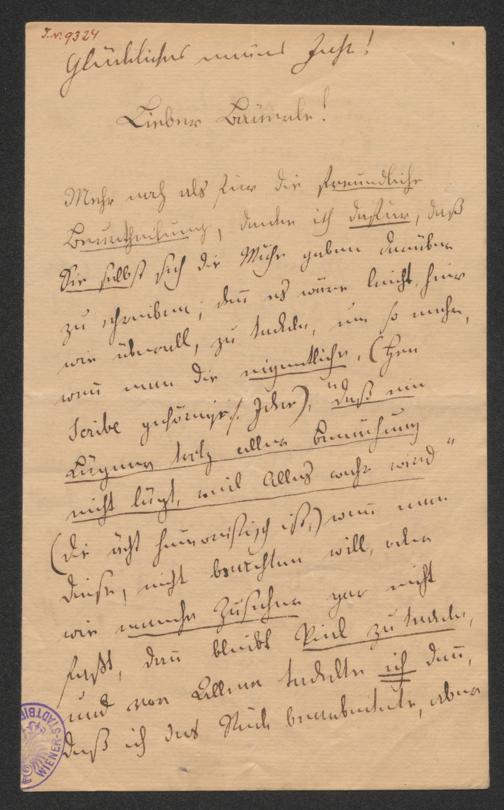 I.N. 9324
Glückliches neues Jahr!
Lieber Bäuerle!
Mehr noch als für die freundliche
Beurtheilung, danke ich dafür, daß
Sie selbst sich die Mühe gaben darüber
zu schreiben; denn es wäre leicht, hier
wie überall, zu tadeln, um so mehr,
wenn man die eigentliche, (Herrn
Scribe gehörige Idee), "daß ein
Lügner trotz aller Bemühung
nicht lügt, weil Alles wahr wird"
(die ächt humoristisch ist,) wenn man
diese, nicht beachten will, oder
wie manche Zuseher gar nicht
faßt, dann bleibt Viel zu tadeln,
und vor Allem tadelte ich dann,
daß ich das Stück bearbeitete, aber
WIENER STADTBIB